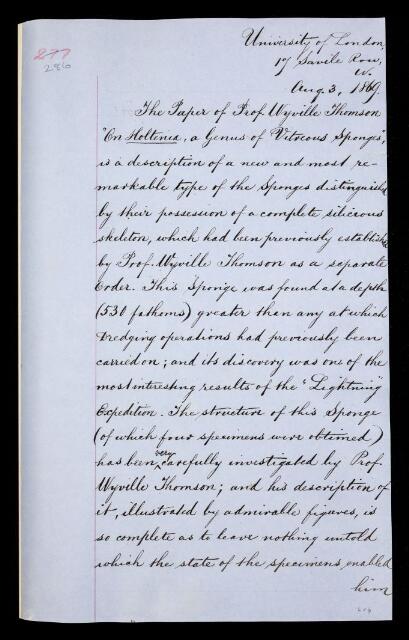 277
286
University of London,
17 Savile Row,
W.
Aug. 3, 1869.
The Paper of Prof. Wyville Thomson
"On Holtenia, a Genus of Vitreous Sponges",
is a description of a new and most re-
markable type of the Sponges distinguished
by their possession of a complete silicious
skeleton, which had been previously established
by Prof. Wyville Thomson as a separate
Order. This Sponge was found at a depth
(530 fathoms) greater than any at which
Dredging operations had previously been
carried on; and its discovery was one of the
most interesting results of the "Lightning"
Expedition. The structure of this Sponge
(of which four specimens were obtained)
has been very carefully investigated by Prof.
Wyville Thomson; and his description of
it, illustrated by admirable figures, is
so complete as to leave nothing untold
which the state of the specimens enabled
him